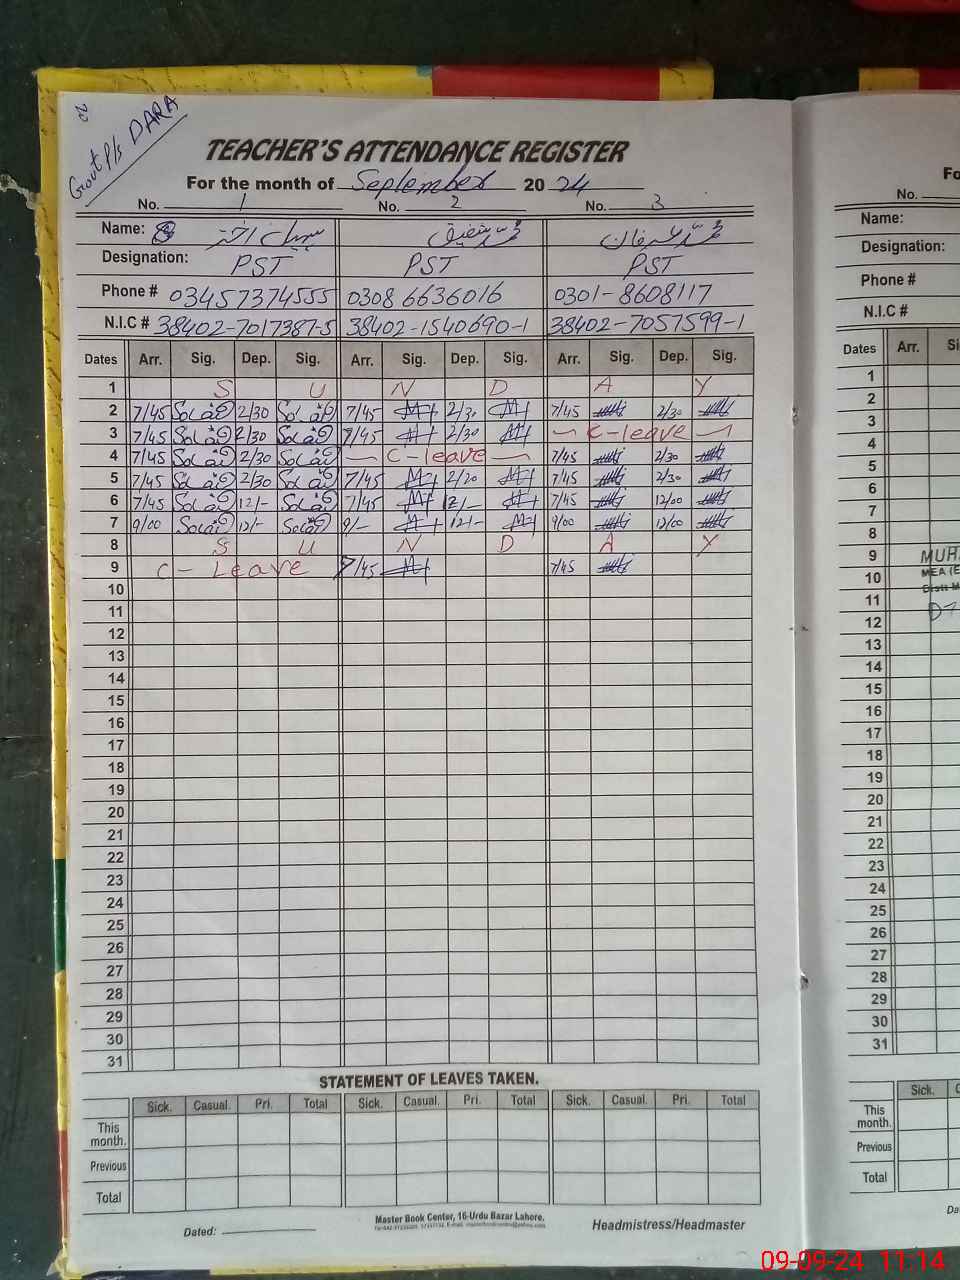 Govt P/s DARA
TEACHER'S ATTENDANCE REGISTER
For the month of September 2024
No. 1 No. 2 No. 3
Name: محمد شفیق محمد عرفان
Designation: PST PST PST
Phone # 03457374555 0308 6636016 0301-8608117
N.I.C # 38402-7017387-5 38402-1540690-1 38402-7057599-1
Dates Arr. Sig. Dep. Sig. Arr. Sig. Dep. Sig. Arr. Sig. Dep. Sig.
1 S U N D A Y
2 7/45 2/30 7/45 2/30 7/45 2/30
3 7/45 2/30 7/45 2/30 C-leave
4 7/45 2/30 C-leave 7/45 2/30
5 7/45 2/30 7/45 2/20 7/45 2/30
6 7/45 12/- 7/45 12/- 7/45 12/00
7 9/00 12/- 9/- 12/- 9/00 12/00
8 S U N D A Y
9 C-Leave 7/45 7/45
10
11
12
13
14
15
16
17
18
19
20
21
22
23
24
25
26
27
28
29
30
31
STATEMENT OF LEAVES TAKEN.
Sick. Casual. Pri. Total Sick. Casual. Pri. Total Sick. Casual. Pri. Total
This month.
Previous
Total
Dated:
Master Book Center, 16-Urdu Bazar Lahore.
Headmistress/Headmaster
Fo
No.
Name:
Designation:
Phone #
N.I.C #
Dates Arr.
1
2
3
4
5
6
7
8
9
10 MEA (E
11
12
13
14
15
16
17
18
19
20
21
22
23
24
25
26
27
28
29
30
31
Sick.
This month.
Previous
Total
09-09-24 11:14